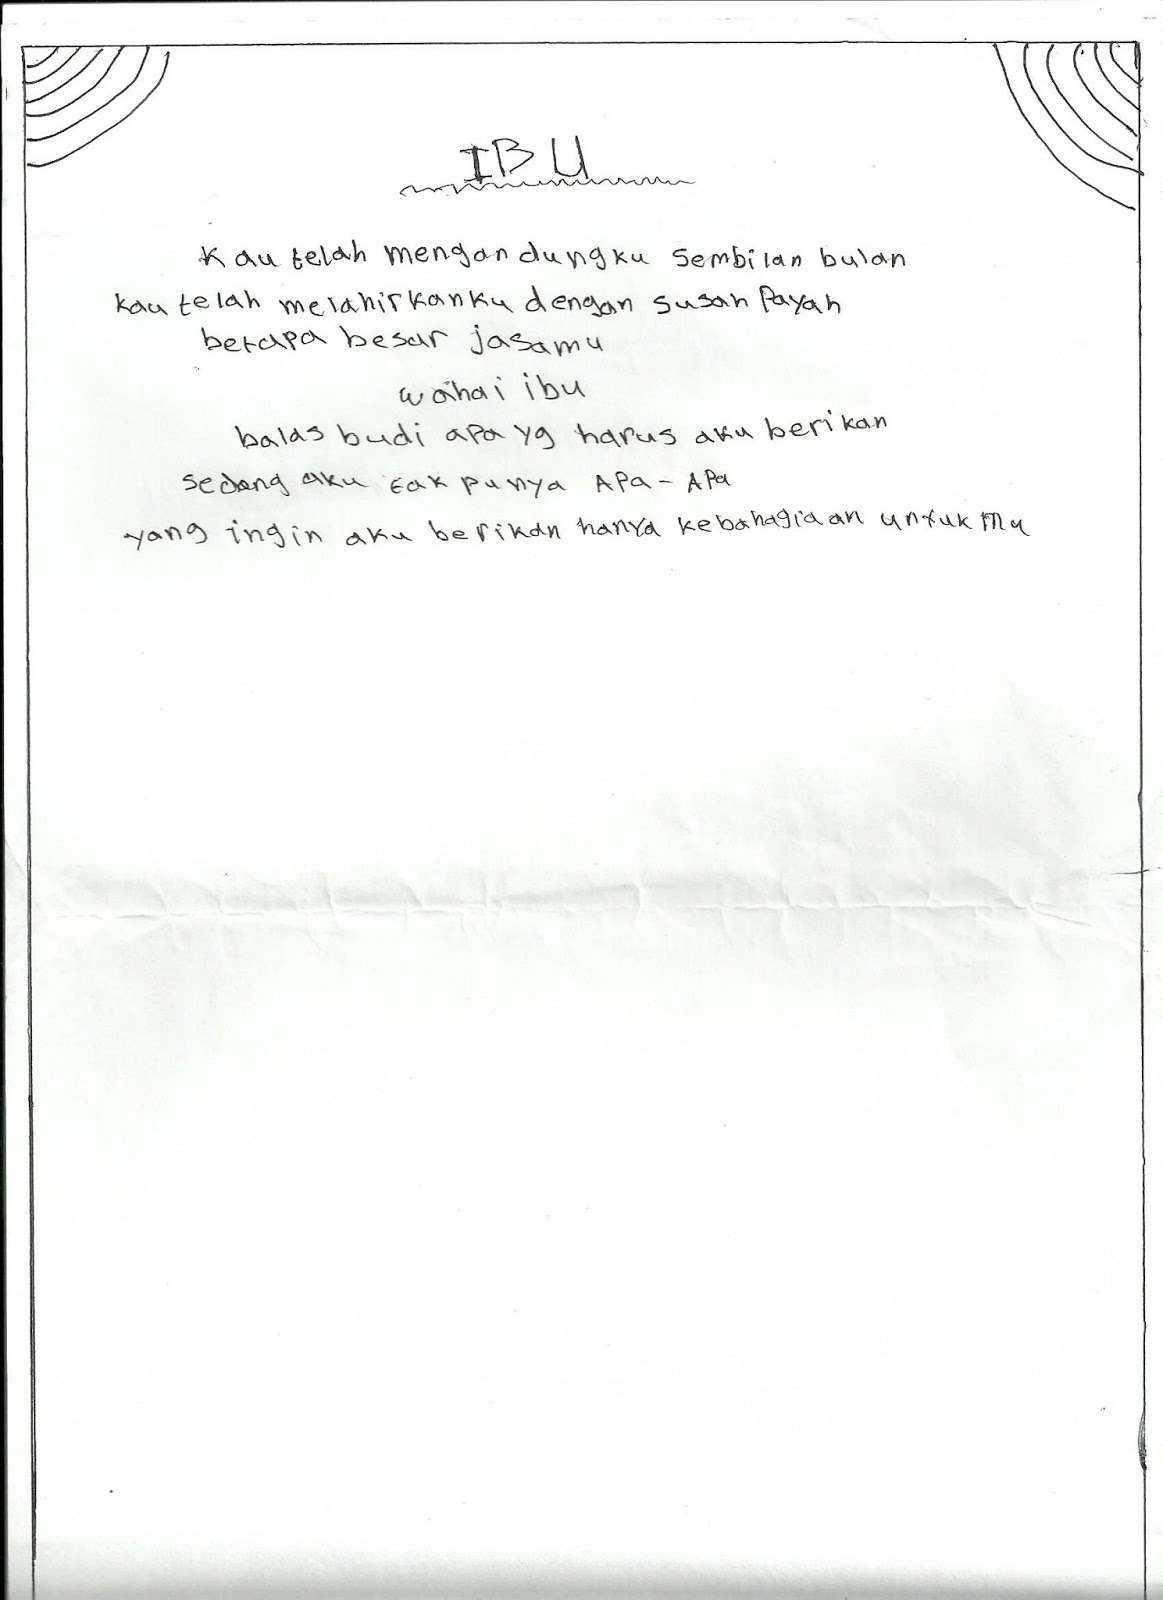 IBU
Kau telah mengandungku sembilan bulan
kau telah melahirkanku dengan susah Payah
berapa besar jasamu
wahai ibu
balas budi apa yg harus aku berikan
sedang aku tak punya APA-APA
yang ingin aku berikan hanya kebahagiaan untukmu